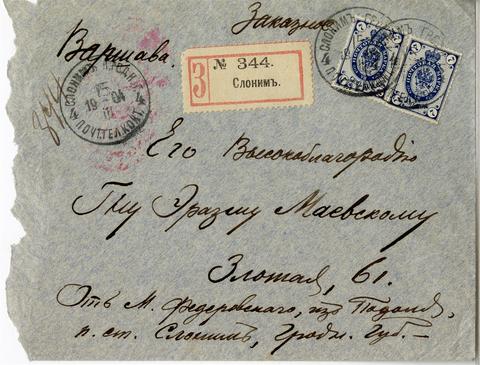 Заказное
Варшава.
З № 344.
Слонимъ.
СЛОНИМЪ ГРОДН. Г.
4 19 04 4
ПОЧТ.ТЕЛ.КОНТ.
7 7
Его Высокоблагородію
Гну Эразму Маевскому
Злотая, 61.
Отъ М. Федеровскаго, изъ
п. ст. Слонимъ, Гродн. Губ. —